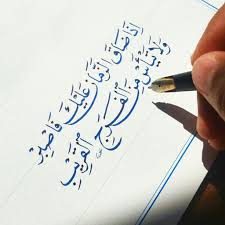 إِذَا ضَاقَ الزَّمَانُ عَلَيْكَ فَاصْبِرْ
وَلَا تَيْأَسْ مِنَ الْفَرَجِ الْقَرِيبِ